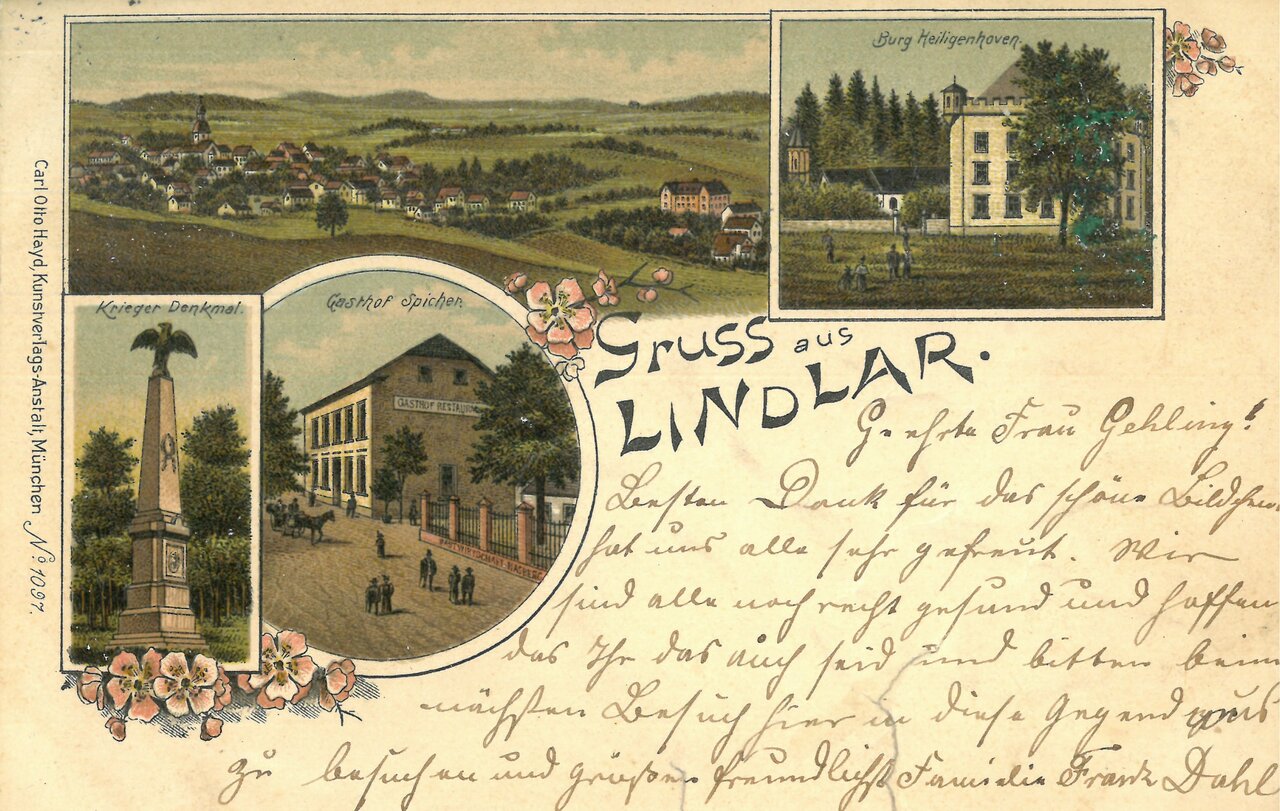 Burg Heiligenhoven.
Krieger Denkmal.
Gasthof Spicher.
GASTHOF RESTAUR
GARTWIRTSCHAFT
Carl Otto Hayd, Kunstverlags-Anstalt, München No 1097.
Gruss aus
LINDLAR.
Geehrte Frau Gehling!
Besten Dank für das schöne Bildchen
hat uns alle sehr gefreut. Wir
sind alle noch recht gesund und hoffen
das Ihr das auch seid und bitten beim
nächsten Besuch hier in diese Gegend uns
zu besuchen und grüßen freundlichst Familie Frantz Dahl